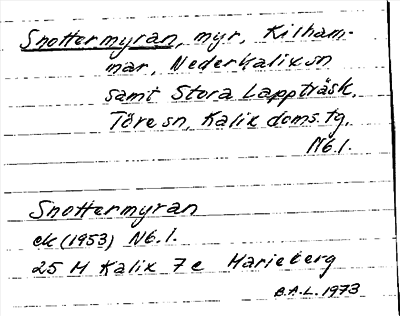 Snottermyran, myr, Kilham-
mar, Nederkalix sn
samt Stora Lappträsk,
Töre sn, Kalix doms. tg,
Nb.l.
Snottermyran
ek (1953) Nb.l.
25 M Kalix 7 c Marieberg
B.A.L. 1973